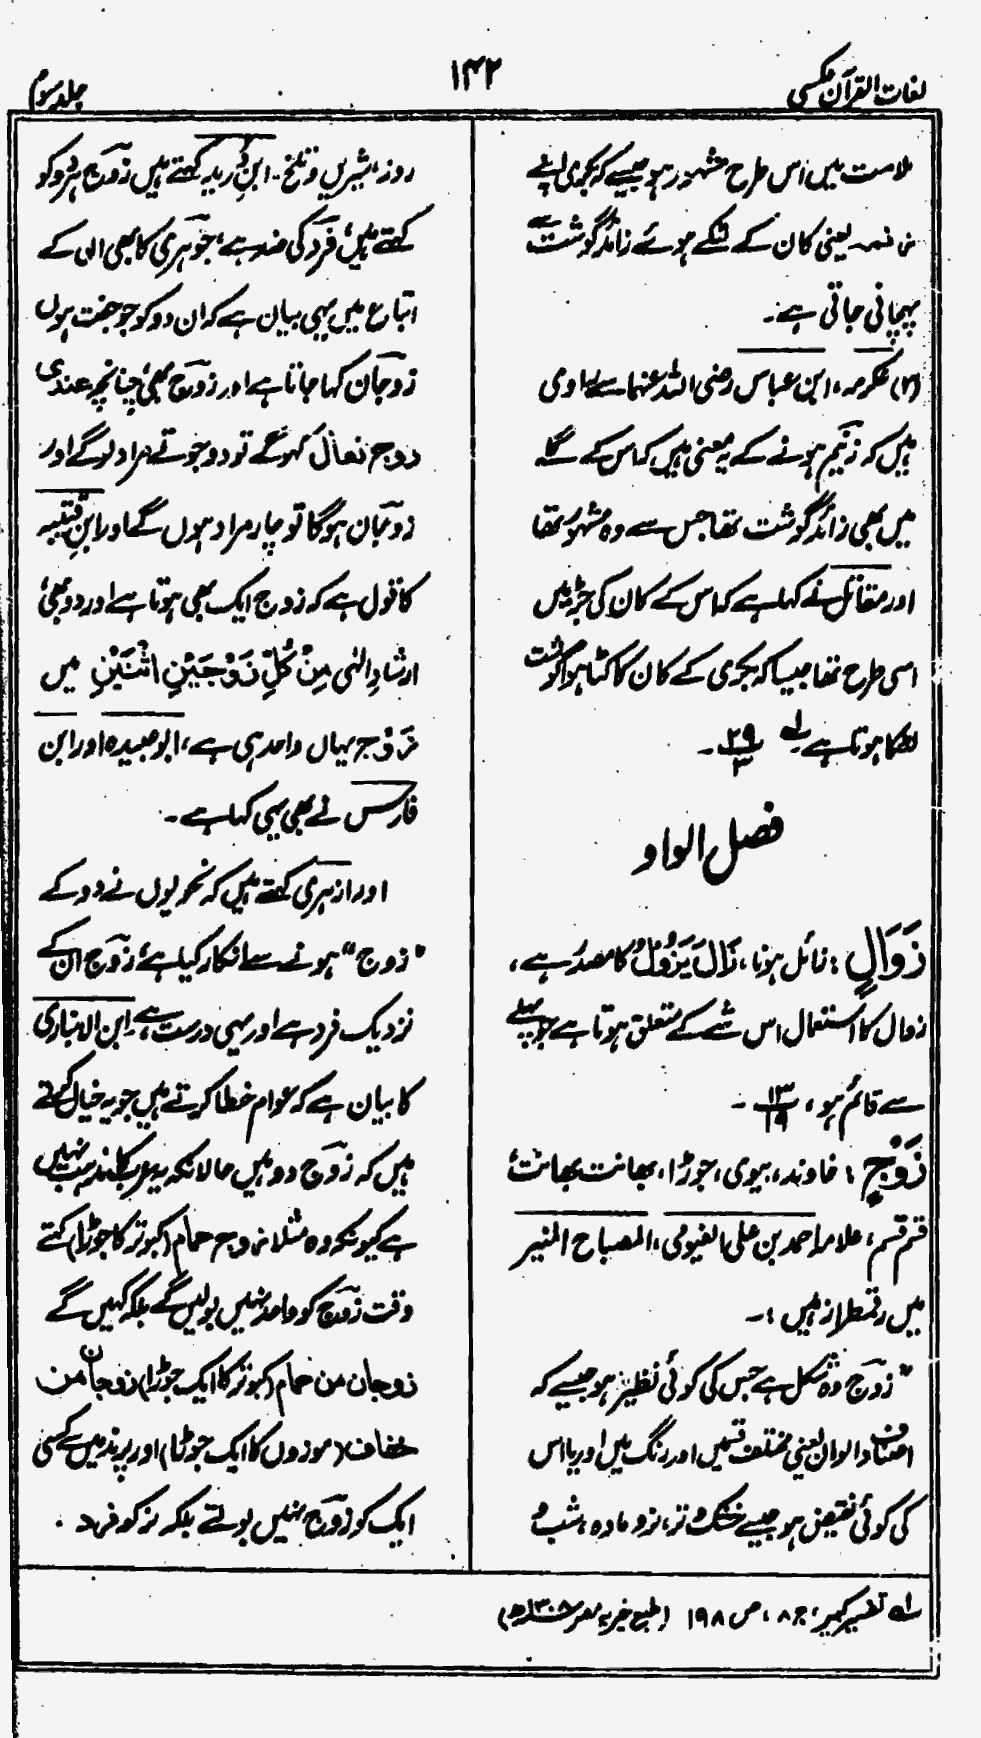 لغات القرآن عکسی
۱۴۲
جلد سوم
ملامت میں اس طرح مشہور ہو جیسے کہ بکری اپنے
زنمہ یعنی کان کے لٹکے ہوئے زائد گوشت سے
پہچانی جاتی ہے۔
(۲) عکرمہ، ابن عباس رضی اللہ عنہما سے راوی
ہیں کہ زنیم ہونے کے یہ معنی ہیں کہ اس کے گلے
میں بھی زائد گوشت تھا جس سے وہ مشہور تھا
اور مقاتل نے کہا ہے کہ اس کے کان کی جڑ میں
اسی طرح تھا جیسا کہ بکری کے کان کا کٹا ہوا گوشت
لٹکا ہوتا ہے لہ ۲۹/۳ ۔
فصل الواو
زَوَالٍ : زائل ہونا، زَالَ یَزُوْلُ کا مصدر ہے،
زوال کا استعمال اس شے کے متعلق ہوتا ہے جو پہلے
سے قائم ہو، ۱۳/۱۹ ۔
زَوْجٍ : خاوند، بیوی، جوڑا، بھانت بھانت،
قسم قسم، علامہ احمد بن علی الفیومی، المصباح المنیر
میں رقمطراز ہیں :۔
" زوج وہ شکل ہے جس کی کوئی نظیر ہو جیسے کہ
اصناف والوان یعنی مختلف قسمیں اور رنگ ہیں اور یا اس
کی کوئی نقیض ہو جیسے خشک و تر، نر و مادہ، شب و
روز، شیریں و تلخ۔ ابن درید کہتے ہیں زوج ہر دو کو
کہتے ہیں، فرد کی ضد ہے، جوہری کا بھی ان کے
اتباع میں یہی بیان ہے کہ ان دو کو جو جفت ہوں
زوجان کہا جاتا ہے اور زوج بھی، چنانچہ عندی
زوج نعال کہو گے تو دو جوتے مراد لو گے اور
زوجان ہوگا تو چار مراد ہوں گے اور ابن قتیبہ
کا قول ہے کہ زوج ایک بھی ہوتا ہے اور دو بھی،
ارشادِ الٰہی مِنْ کُلٍّ زَوْجَیْنِ اثْنَیْنِ میں
زَوْج یہاں واحد ہی ہے، ابو عبیدہ اور ابن
فارس نے بھی یہی کہا ہے۔
اور ازہری کہتے ہیں کہ نحویوں نے دو کے
"زوج" ہونے سے انکار کیا ہے، زوج ان کے
نزدیک فرد ہے اور یہی درست ہے، ابن الانباری
کا بیان ہے کہ عوام خطا کرتے ہیں جو یہ خیال کرتے
ہیں کہ زوج دو ہیں حالانکہ یہ عرب کا مذہب نہیں
ہے کیونکہ وہ مثلاً زوج حمام (کبوتر کا جوڑا) کہتے
وقت زوج کو واحد نہیں بولیں گے بلکہ کہیں گے
زوجان من حمام (کبوتر کا ایک جوڑا) زوجان من
خفاف (موزوں کا ایک جوڑا) اور پرند میں سے کسی
ایک کو زوج نہیں بولتے بلکہ نر کو فرد ۔
لہ تفسیر کبیر، ج ۸، ص ۱۹۸ (طبع خیریہ مصر ۱۳۰۸ھ)